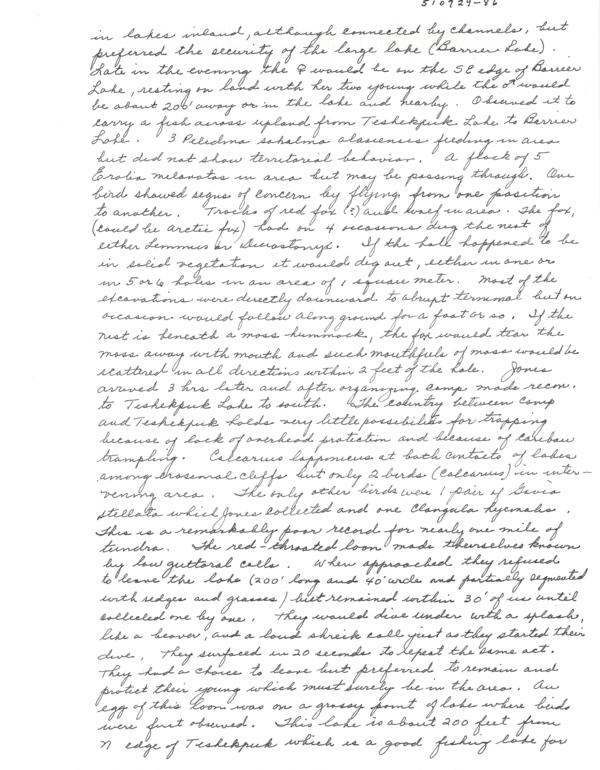 510729-86
in lakes inland, although connected by channels, but
preferred the security of the large lake (Barrier Lake).
Late in the evening the ♀ would be on the SE edge of Barrier
Lake, resting on land with her two young while the ♂ would
be about 200' away or in the lake and nearby. Observed it to
carry a fish across upland from Teshekpuk Lake to Barrier
Lake. 3 Pelidna sakalina feeding in area
but did not show territorial behavior. A flock of 5
Erolia melanotos in area but may be passing through. One
bird showed signs of concern by flying from one position
to another. Tracks of red fox (?) and wolf in area. The fox,
(could be arctic fox) had on 4 occasions dug the nest of
either Lemmus or Dicrostonyx. If the hole happened to be
in solid vegetation it would dig out, either in one or
in 5 or 6 holes in an area of 1 square meter. Most of the
excavations were directly downward to abrupt terminal but on
occasion would follow along ground for a foot or so. If the
nest is beneath a moss hummock, the fox would tear the
moss away with mouth and such mouthfuls of moss would be
scattered in all directions within 2 feet of the hole. Jones
arrived 3 hrs later and after organizing camp made recon.
to Teshekpuk Lake to south. The country between camp
and Teshekpuk holds very little possibilities for trapping
because of lack of overhead protection and because of caribou
trampling. Calcarius lapponicus at both contacts of lakes
among erosional cliffs but only 2 birds (Calcarius) in inter-
vening area. The only other birds were 1 pair of Gavia
stellata which Jones collected and one Clangula hyemalis.
This is a remarkably poor record for nearly one mile of
tundra. The red-throated loon made themselves known
by low guttural calls. When approached they refused
to leave the lake (200' long and 40' wide and partially segmented
with sedges and grasses) but remained within 30' of us until
collected one by one. They would dive under with a splash,
like a beaver, and a loud shreik call just as they started their
dive. They surfaced in 20 seconds to repeat the same act.
They had a choice to leave but preferred to remain and
protect their young which must surely be in the area. An
egg of this loon was on a grassy point of lake where birds
were first observed. This lake is about 200 feet from
N edge of Teshekpuk which is a good fishing lake for